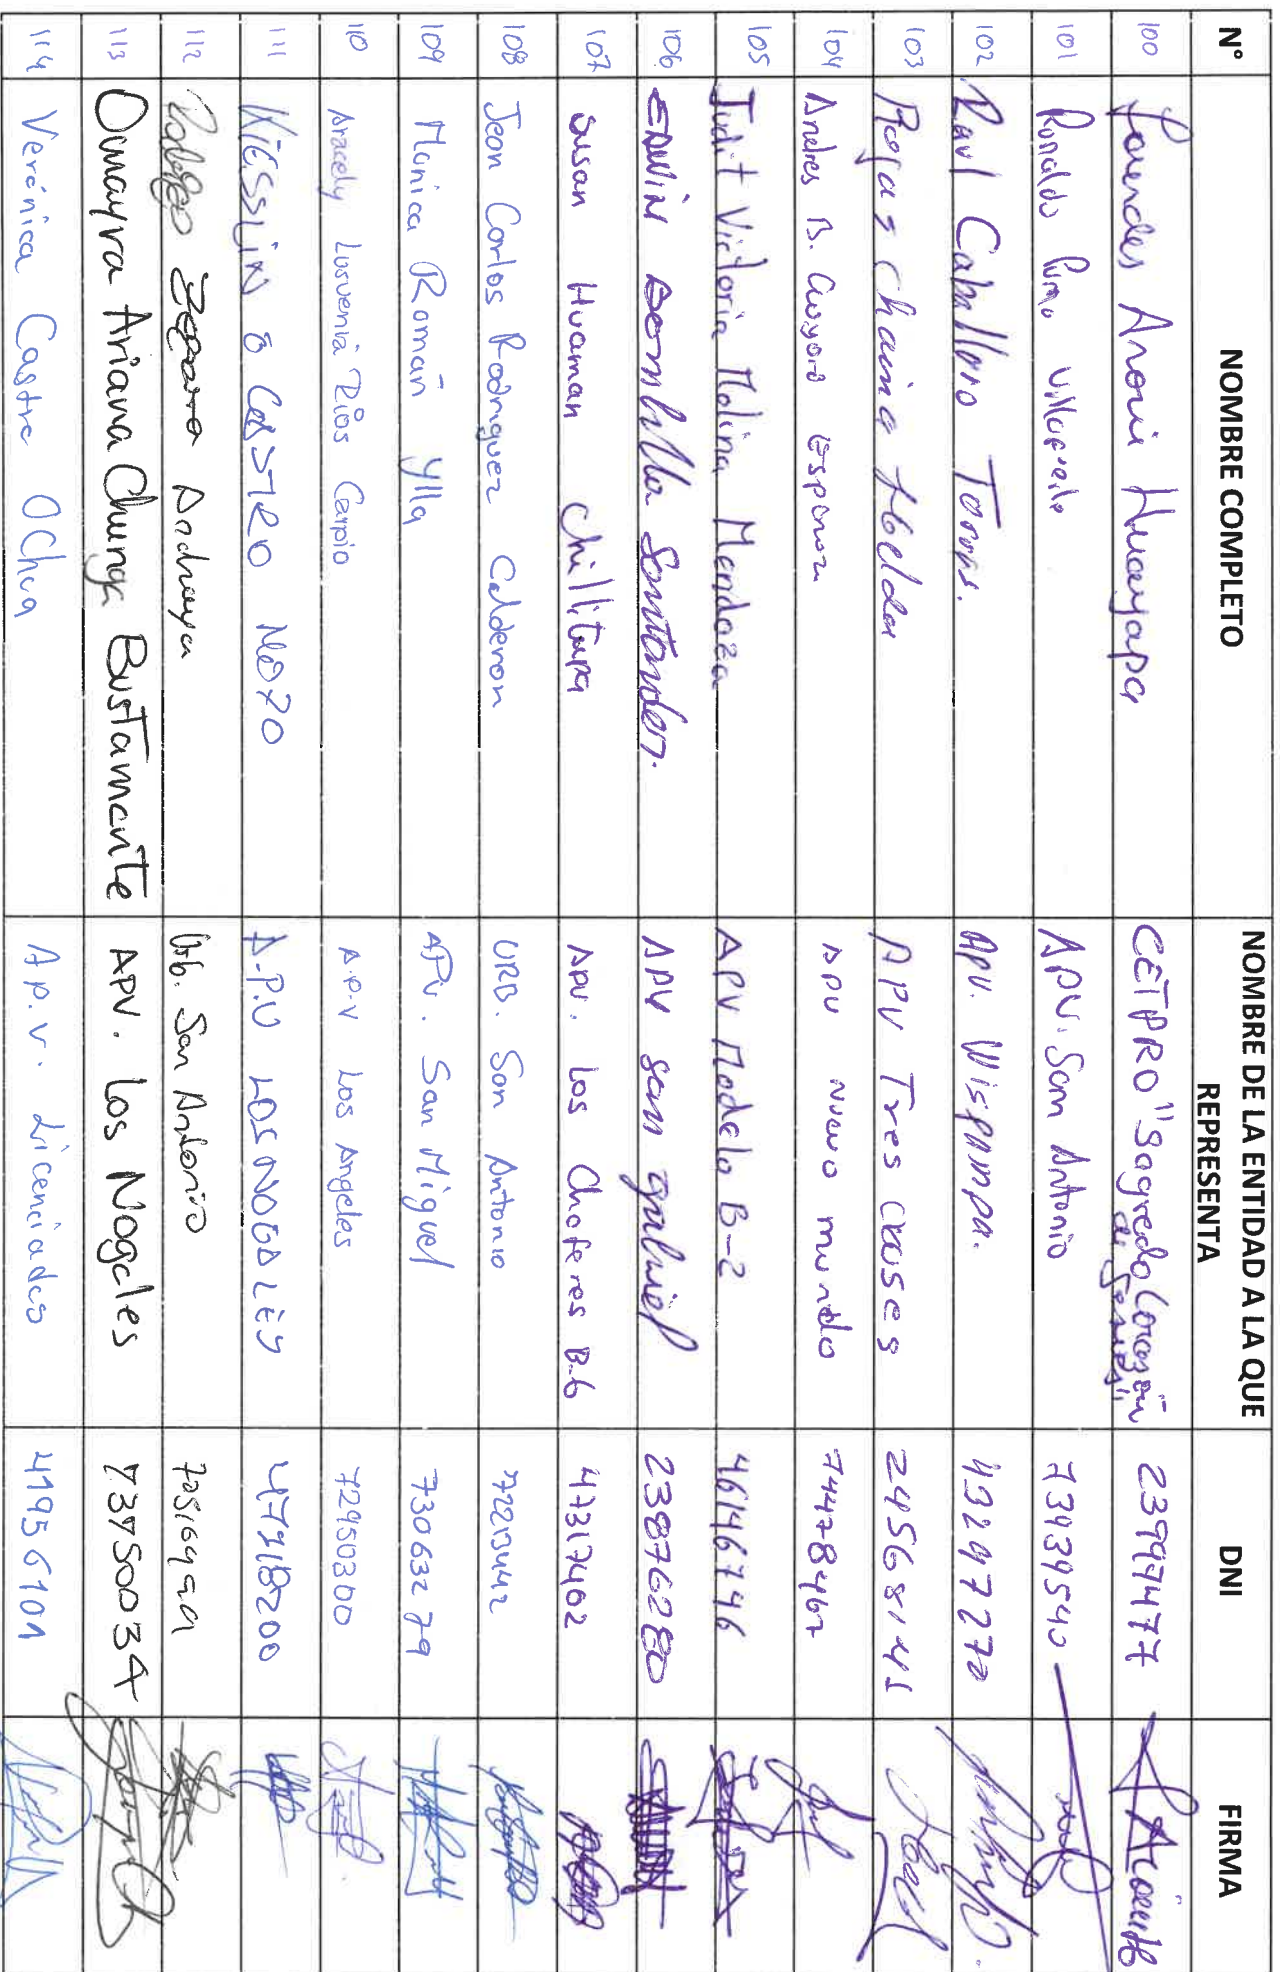 N° NOMBRE COMPLETO NOMBRE DE LA ENTIDAD A LA QUE REPRESENTA DNI FIRMA
100 Lourdes Aroni Huayapa CETPRO "Sagredo Corazón de Jesús" 23997477
101 Ronaldo Puma APV. San Antonio 73939540
102 Raul Caballero Torres. APV. Wispampa. 43297270
103 Rojas Chaina Abelda APV Tres Cruses 24568145
104 Andres B. Espinoza APV Nuevo mundo 74478467
105 Judit Victoria Molina Mendoza APV Modelo B-2 46146746
106 EDWIN Bornilla Santander. APV San gabriel 23876280
107 Susan Huaman Chillitupa APV. Los Choferes B-6 47317402
108 Jean Carlos Rodriguez Calderon URB. San Antonio 72213442
109 Monica Roman Ylla APV. San Miguel 73063279
110 Aracely Lusvenia Rios Carpio A.P.V Los Angeles 72950300
111 KIESSLIN CASTRO A.P.V LOS NOGALES 47718200
112 Rodrigo Andrea Urb. San Antonio
113 Omayra Ariana Chunga Bustamante APV. Los Nogales 73750034
114 Verónica Castro Ochoa A.p.v. Licenciados 41956101